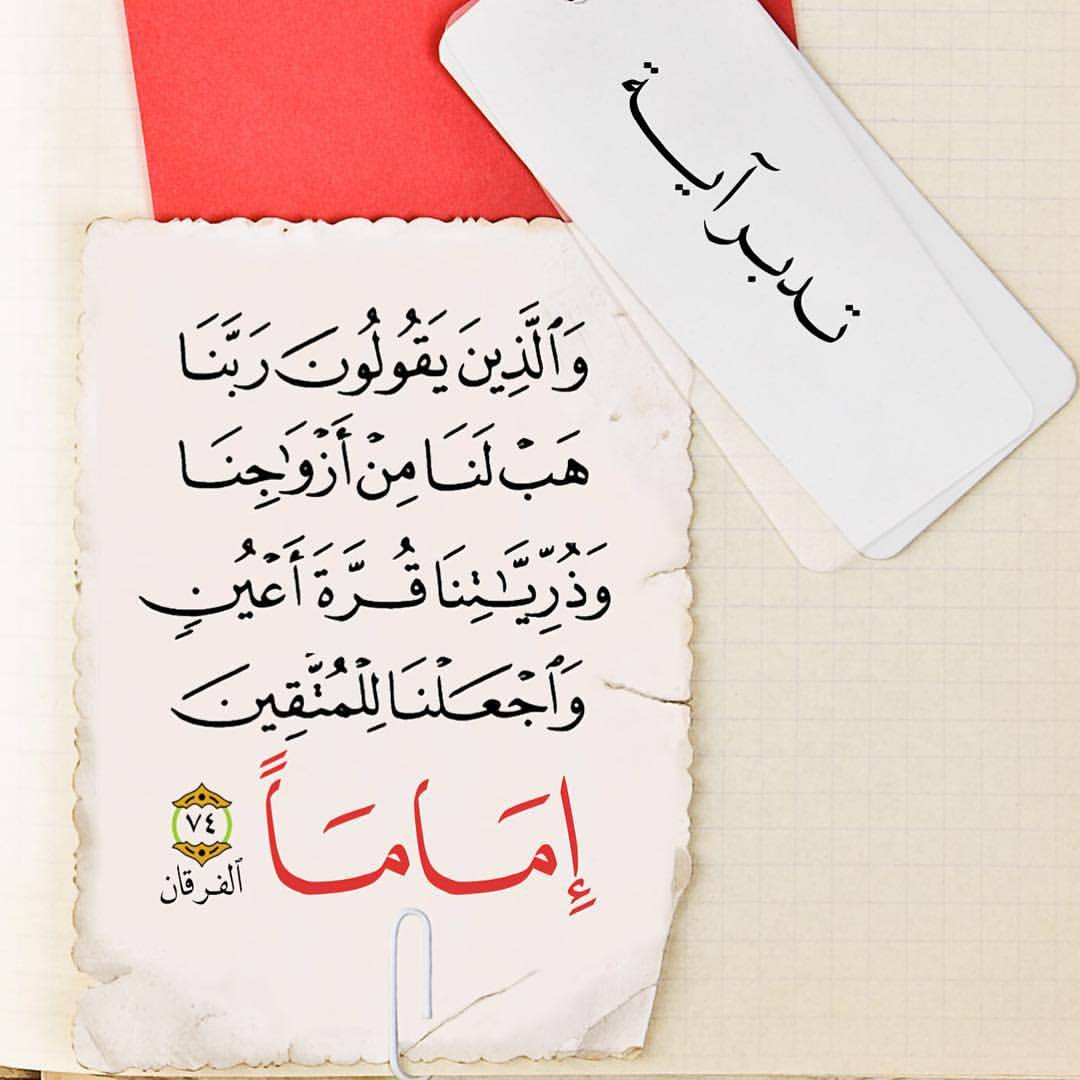 تدبر آية
وَٱلَّذِينَ يَقُولُونَ رَبَّنَا
هَبْ لَنَا مِنْ أَزْوَٰجِنَا
وَذُرِّيَّـٰتِنَا قُرَّةَ أَعْيُنٍ
وَٱجْعَلْنَا لِلْمُتَّقِينَ
إِمَامَاً ٧٤
ٱلفرقان